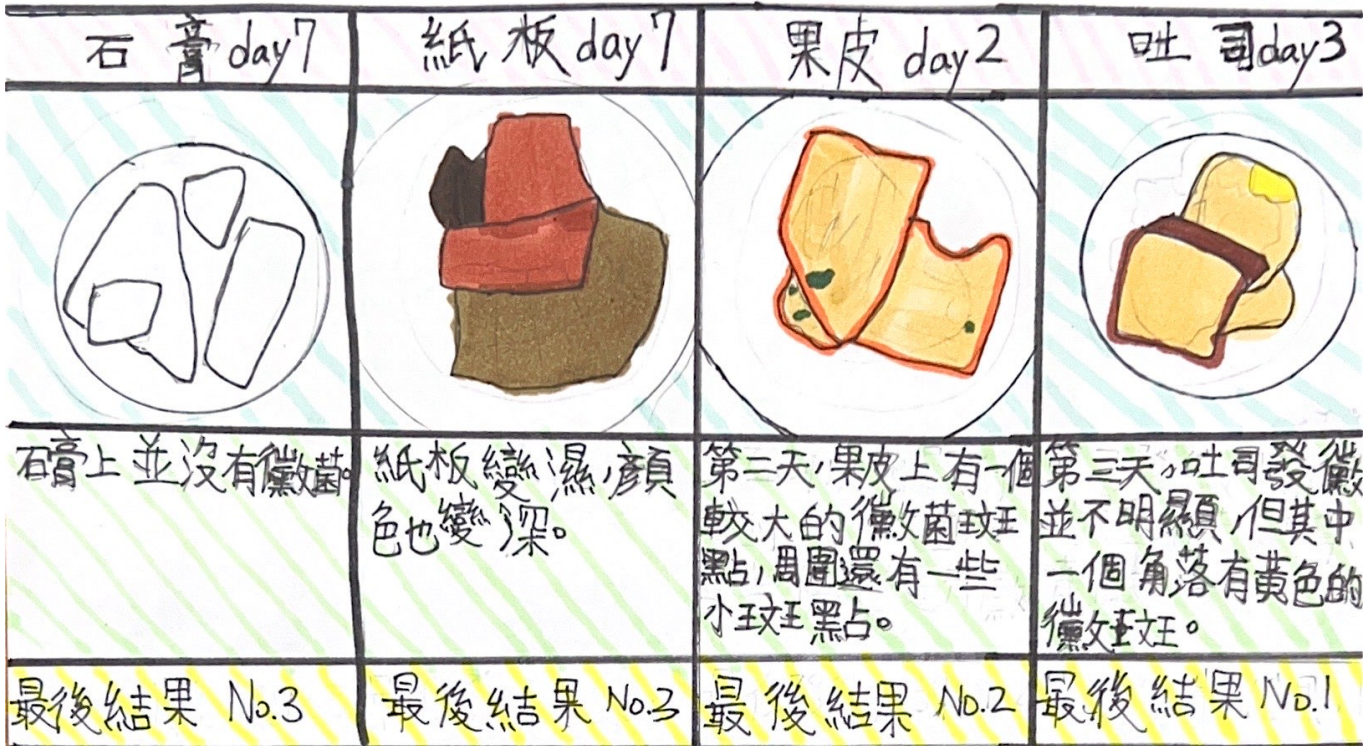 石膏day7
紙板day7
果皮day2
吐司day3
石膏上並沒有黴菌。
紙板變濕,顏
色也變深。
第二天,果皮上有一個
較大的黴菌斑
點,周圍還有一些
小斑點。
第三天,吐司發黴
並不明顯,但其中
一個角落有黃色的
黴斑。
最後結果 No.3
最後結果 No.3
最後結果 No.2
最後結果 No.1